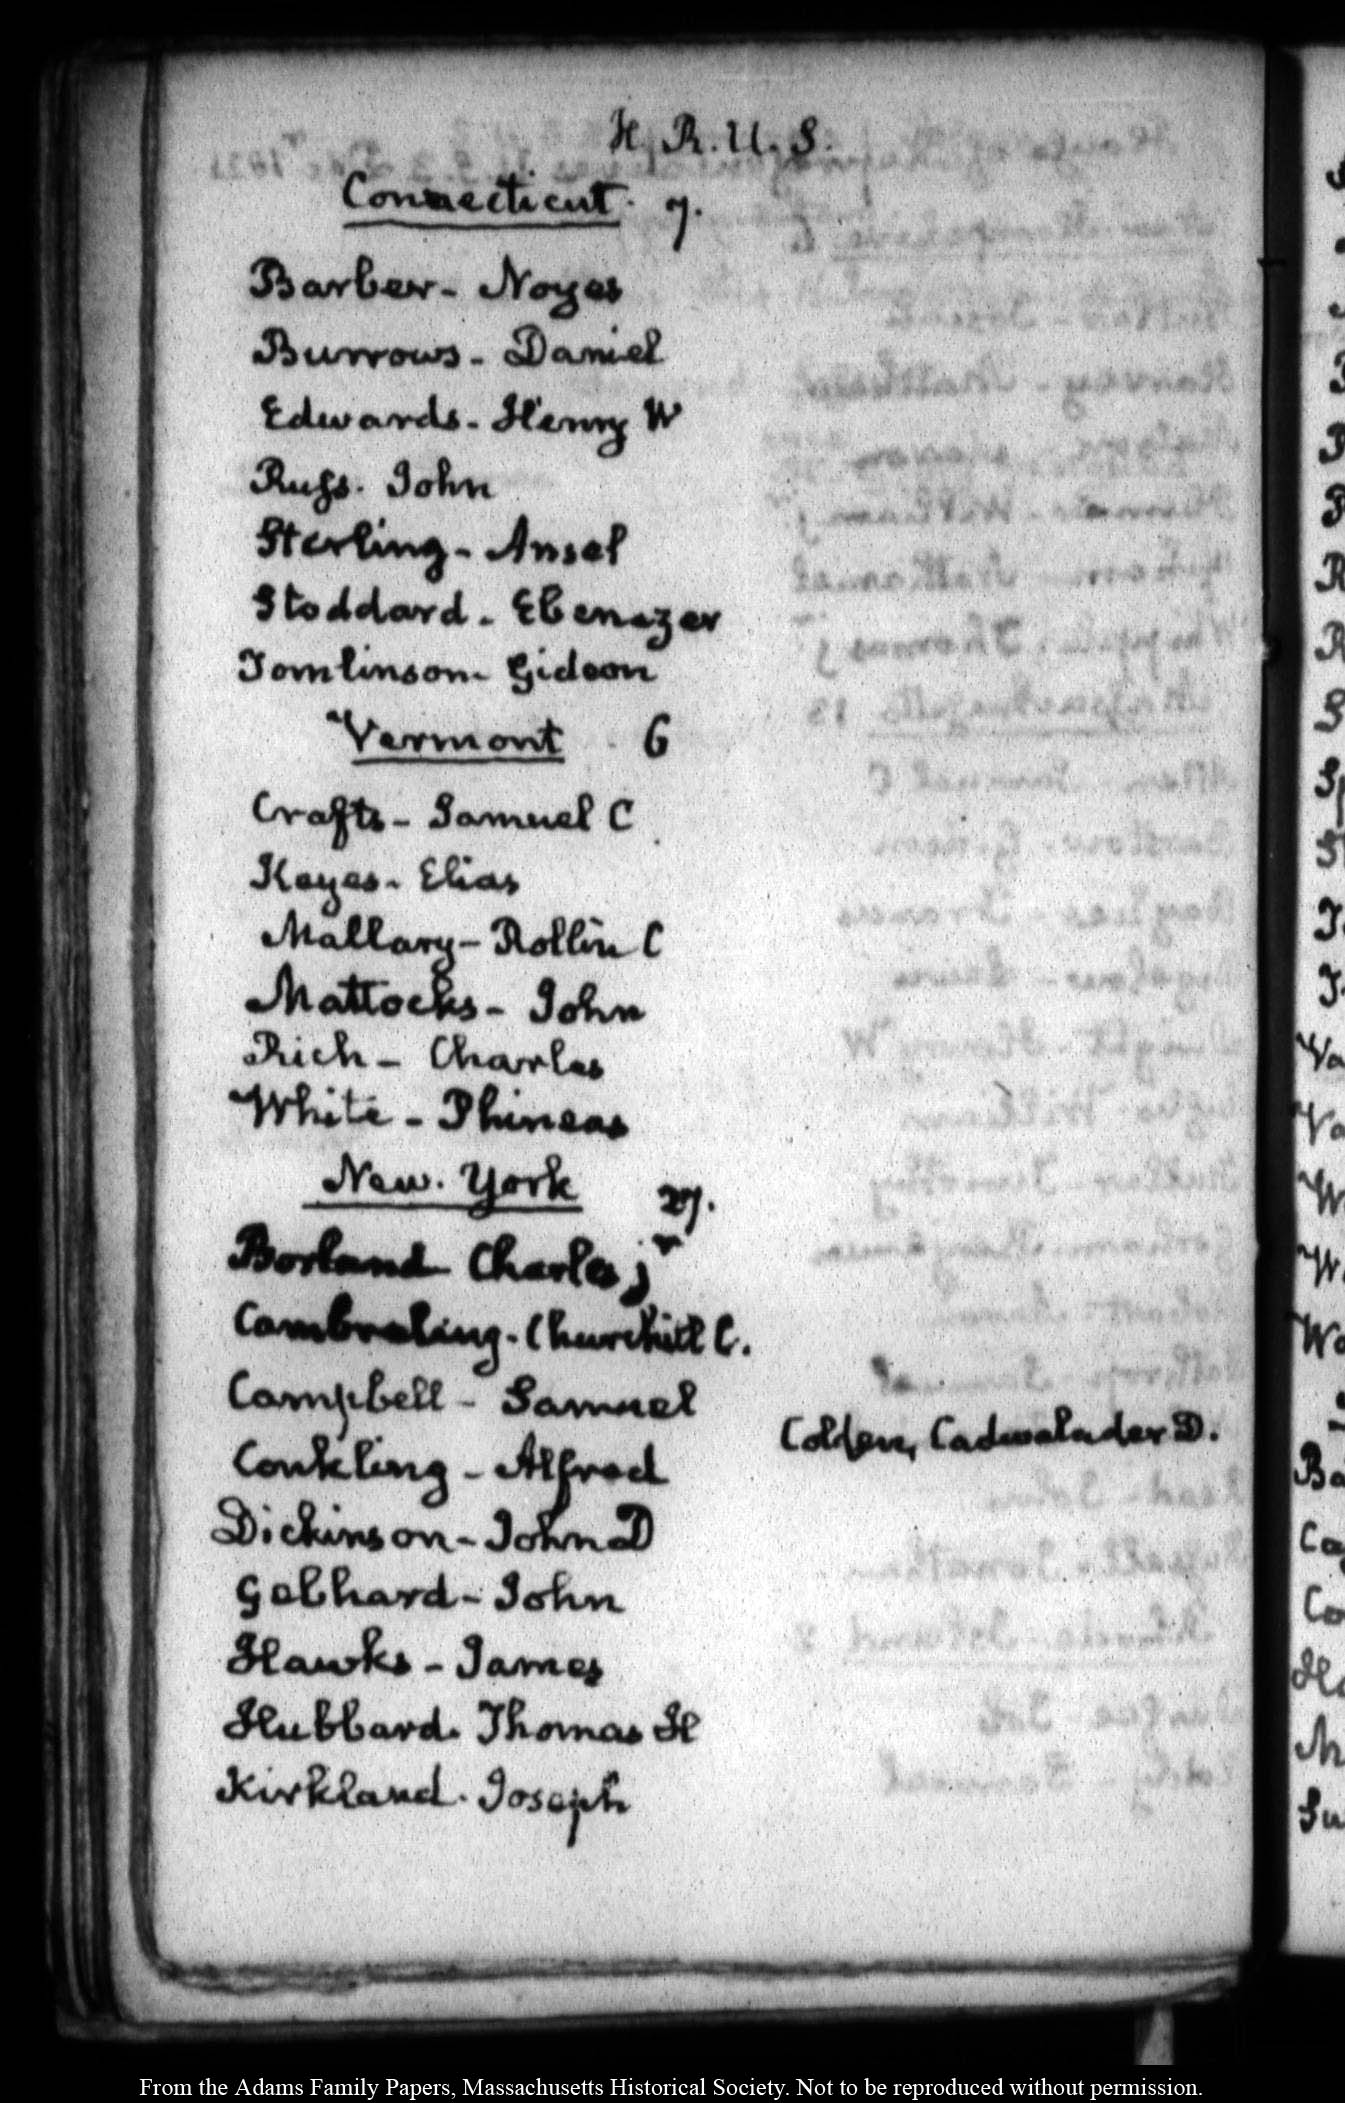 H. R. U. S.
Connecticut. 7.
Barber- Noyes
Burrows- Daniel
Edwards- Henry W
Russ. John
Sterling- Ansel
Stoddard. Ebenezer
Tomlinson- Gideon
Vermont 6
Crafts- Samuel C
Keyes- Elias
Mallary- Rollin C
Mattocks- John
Rich- Charles
White- Phineas
New. York 27.
Borland Charles jr
Cambreling- Churchill C.
Campbell- Samuel
Colden, Cadwalader D.
Conkling- Alfred
Dickinson- John D
Gebhard- John
Hawks- James
Hubbard. Thomas H
Kirkland. Joseph
From the Adams Family Papers, Massachusetts Historical Society. Not to be reproduced without permission.